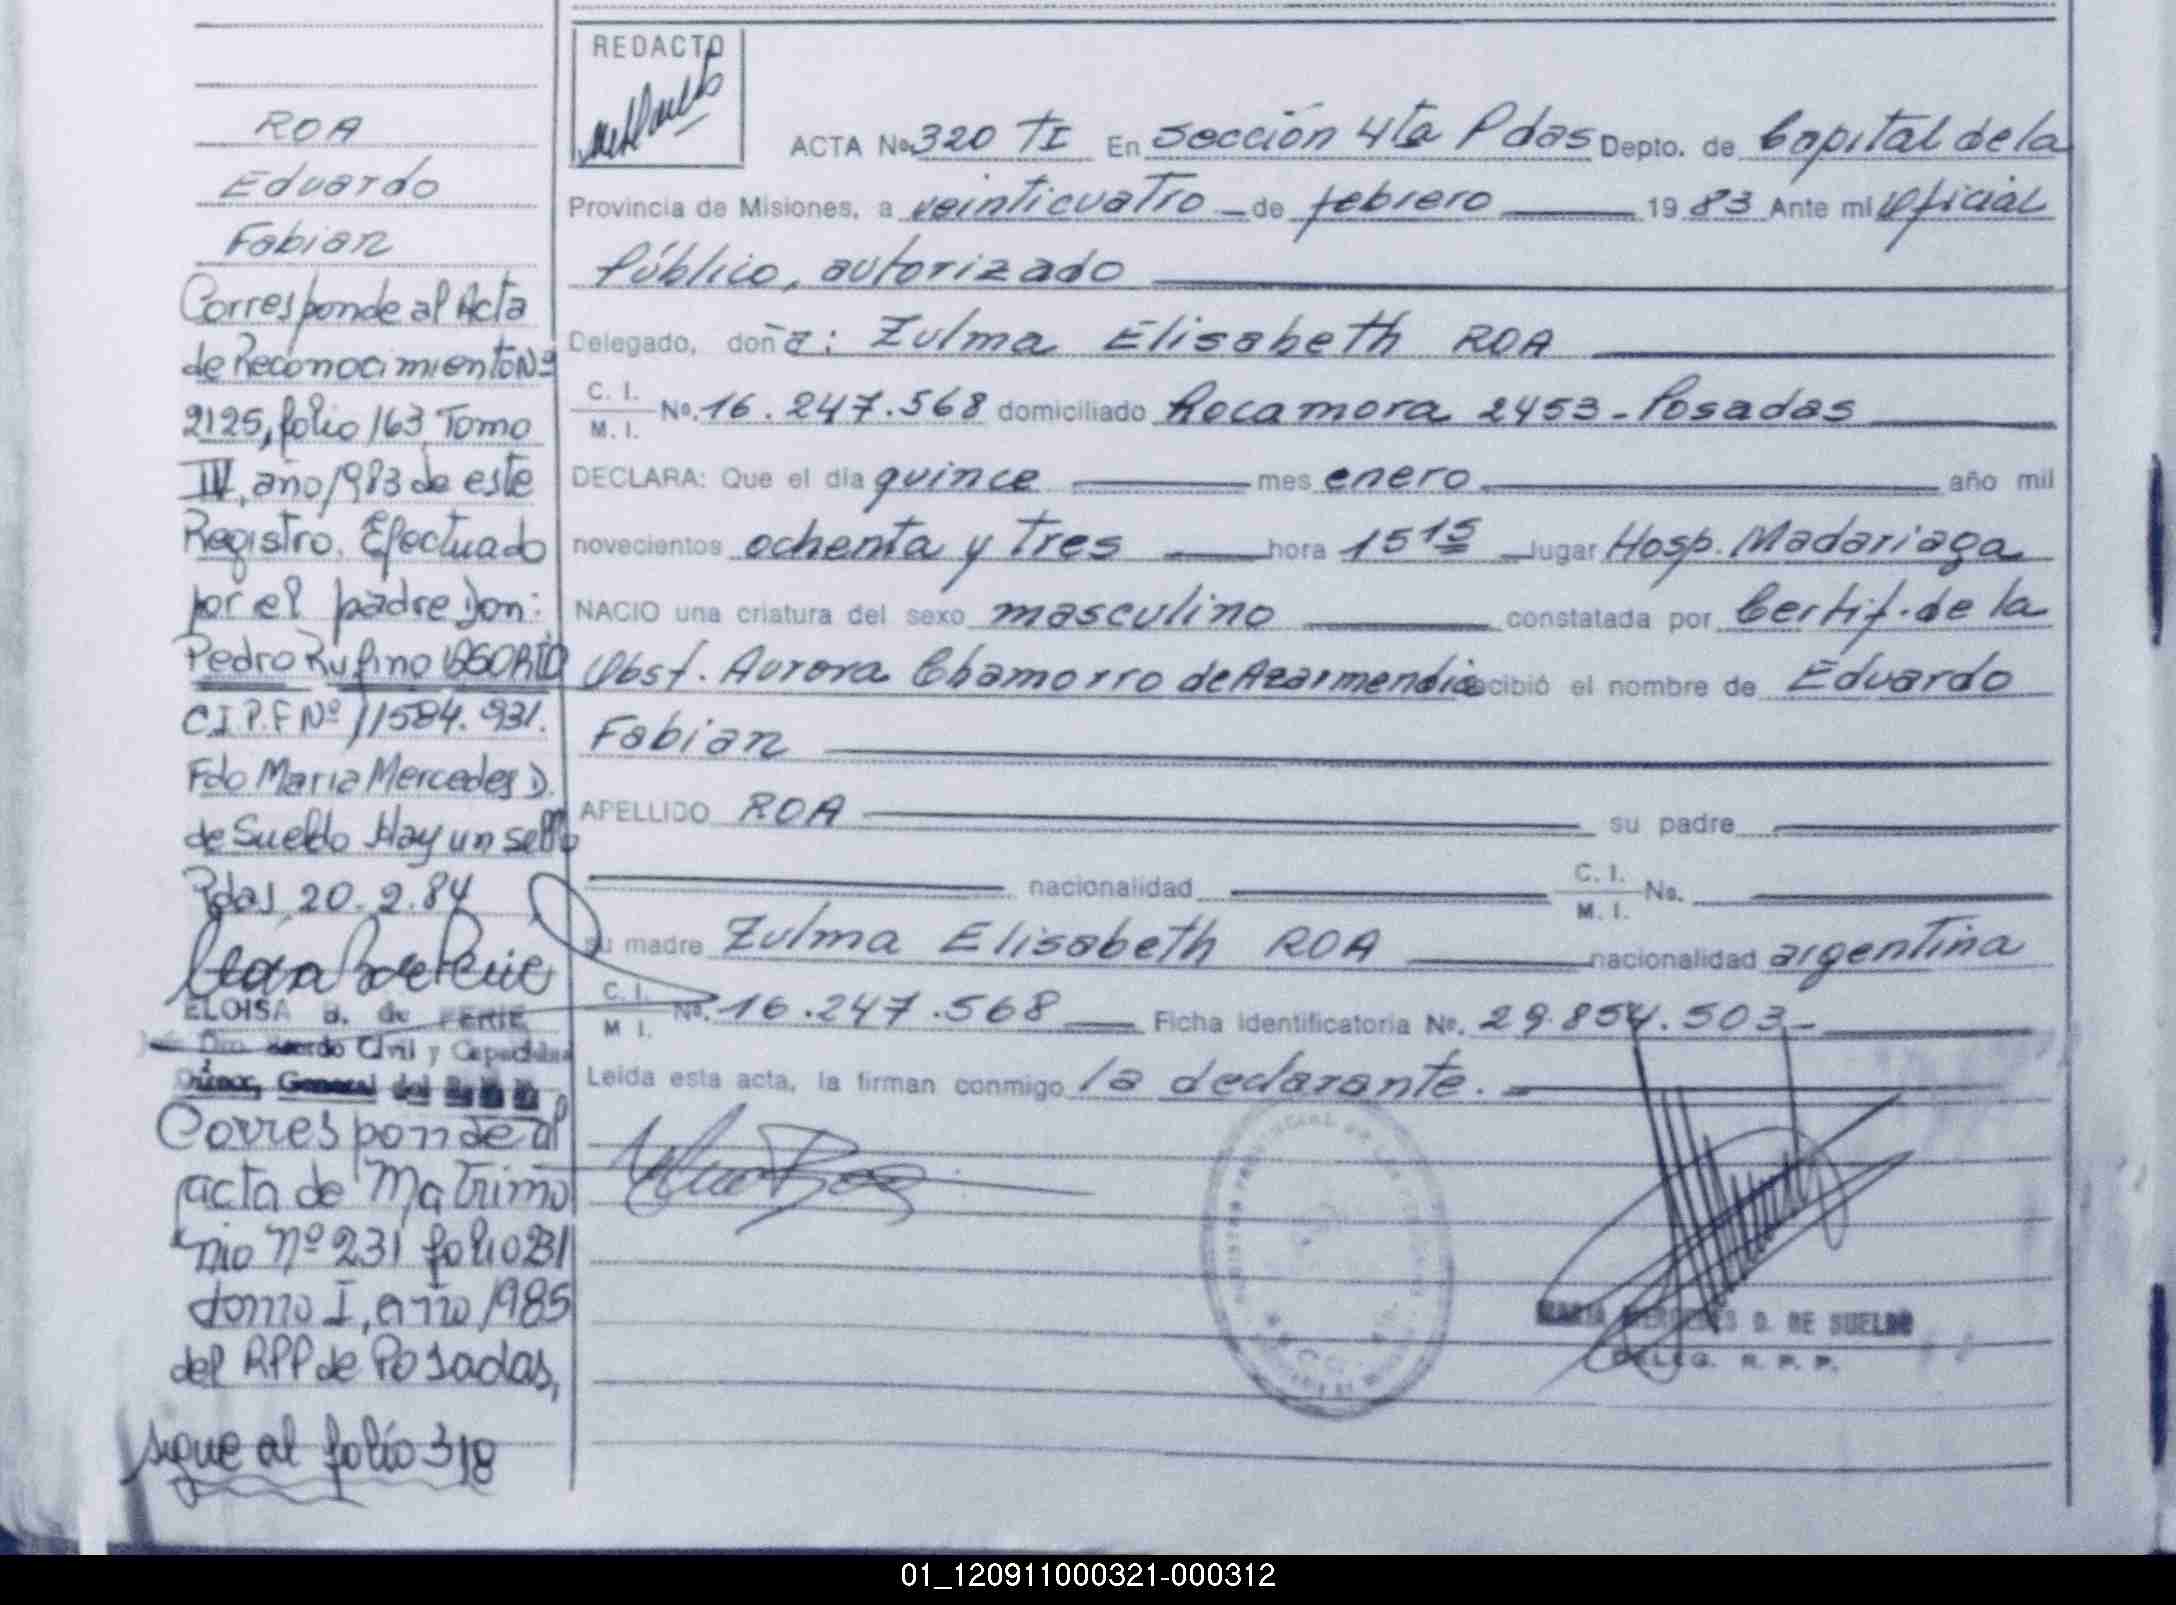 ROA
Eduardo
Fabian
Corresponde al Acta
de Reconocimiento Nº
2125, folio 163 Tomo
IV, año 1983 de este
Registro. Efectuado
por el padre Don:
Pedro Rufino OSORIO
C.I.P.F Nº 11584.931.
Fdo Maria Mercedes D.
de Sueldo Hay un sello
Pdas, 20.2.84
ELOISA B. de FERIE
Civil y
General del
Corresponde al
acta de Matrimo
nio nº 231 folio 231
tomo I, año 1985
del RPP de Posadas,
sigue al folio 318
REDACTO
ACTA Nº 320 TI En Sección 4ta Pdas Depto. de Capital de la
Provincia de Misiones, a veinticuatro de febrero 1983 Ante mí Oficial
Público, autorizado
Delegado, doña: Zulma Elisabeth ROA
C. I.
M. I. Nº. 16.247.568 domiciliado Rocamora 2453 - Posadas
DECLARA: Que el día quince mes enero año mil
novecientos ochenta y tres hora 15 15 lugar Hosp. Madariaga
NACIO una criatura del sexo masculino constatada por Certif. de la
Obst. Aurora Chamorro de Azarmendia recibió el nombre de Eduardo
Fabian
APELLIDO ROA su padre
nacionalidad C. I.
M. I. Nº.
su madre Zulma Elisabeth ROA nacionalidad argentina
C. I.
M I. Nº. 16.247.568 Ficha Identificatoria Nº. 29.854.503-
Leída esta acta, la firman conmigo la declarante.
MARIA MERCEDES D. DE SUELDO
DELEG. R. P. P.
01_120911000321-000312